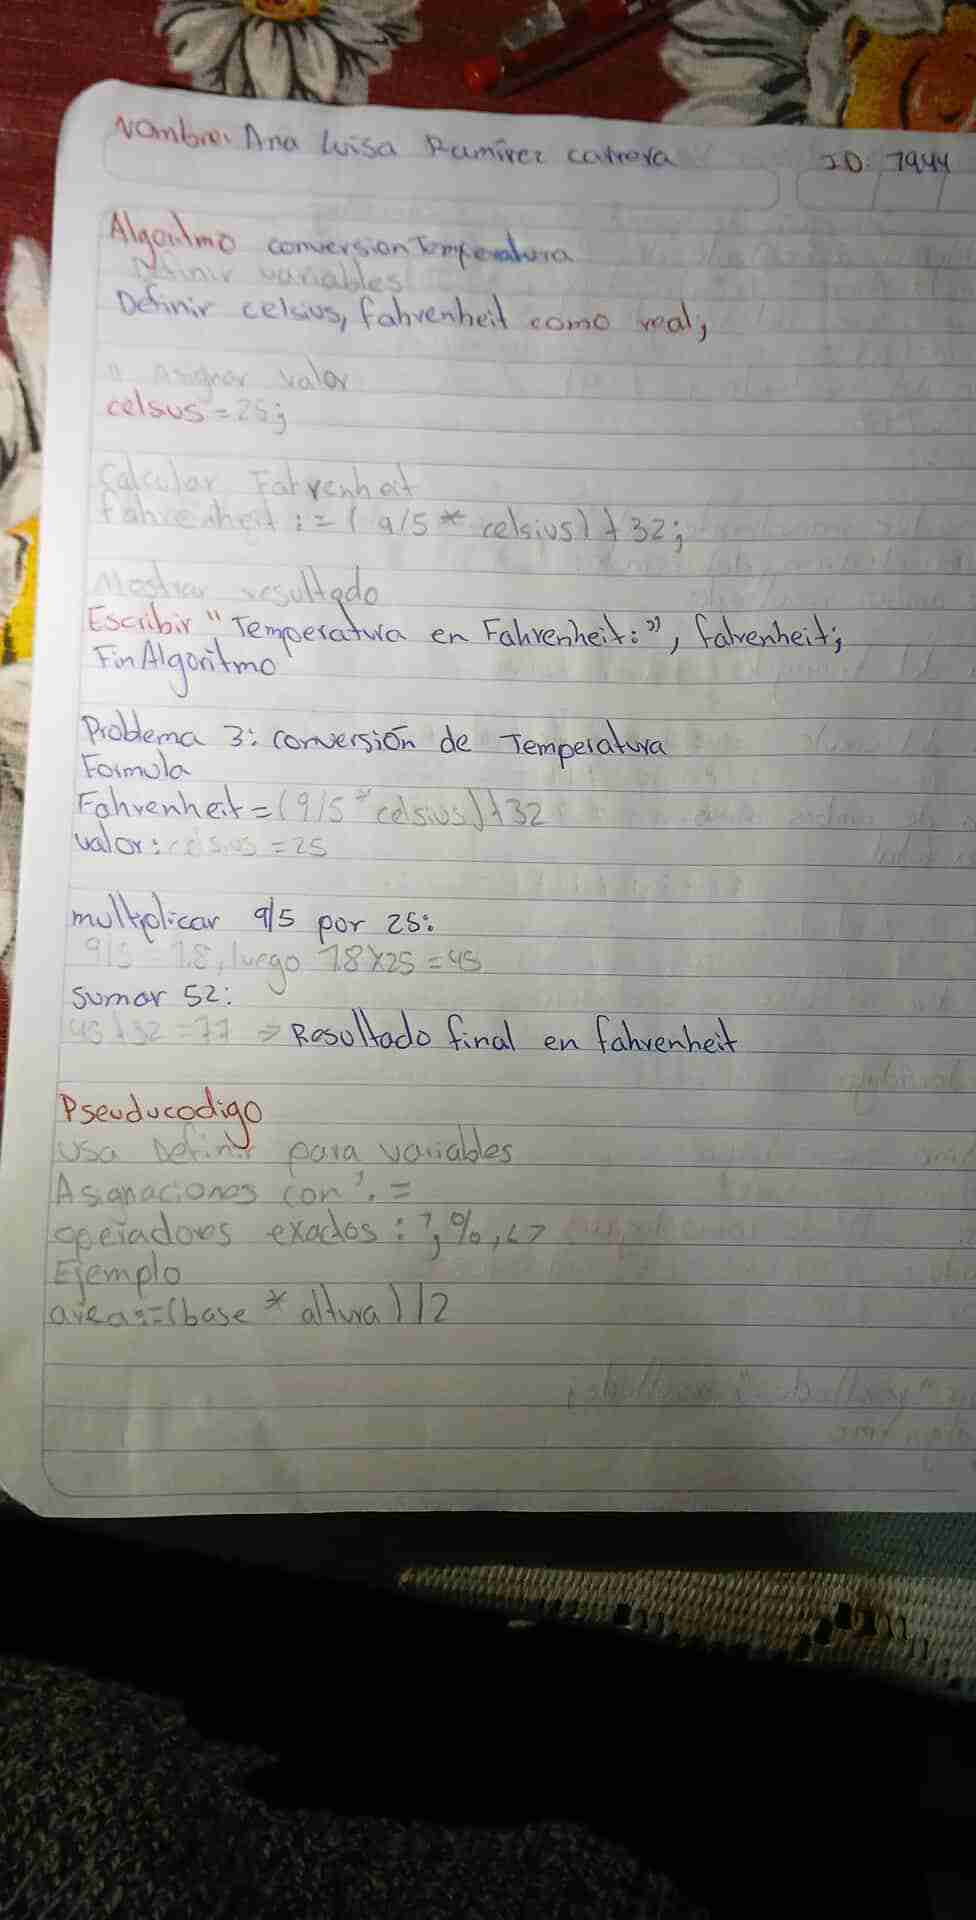 Nombre: Ana Luisa Ramirez Cabrera ID: 7944
Algoritmo conversionTemperatura
Definir variables
Definir celsius, fahrenheit como real;
// Asignar valor
celsus = 25;
Calcular Fahrenheit
fahrenheit := ( 9/5 * celsius) + 32;
Mostrar resultado
Escribir "Temperatura en Fahrenheit:", fahrenheit;
FinAlgoritmo
Problema 3: conversión de Temperatura
Formula
Fahrenheit = (9/5 * celsius) + 32
valor: celsius = 25
multiplicar 9/5 por 25:
9/5 = 1.8, luego 1.8 X 25 = 45
sumar 52:
45 + 32 = 77 => Resultado final en fahrenheit
Pseuducodigo
Usa Definir para variables
Asignaciones con : =
operadores exados : , %, < >
Ejemplo
area := (base * altura) / 2